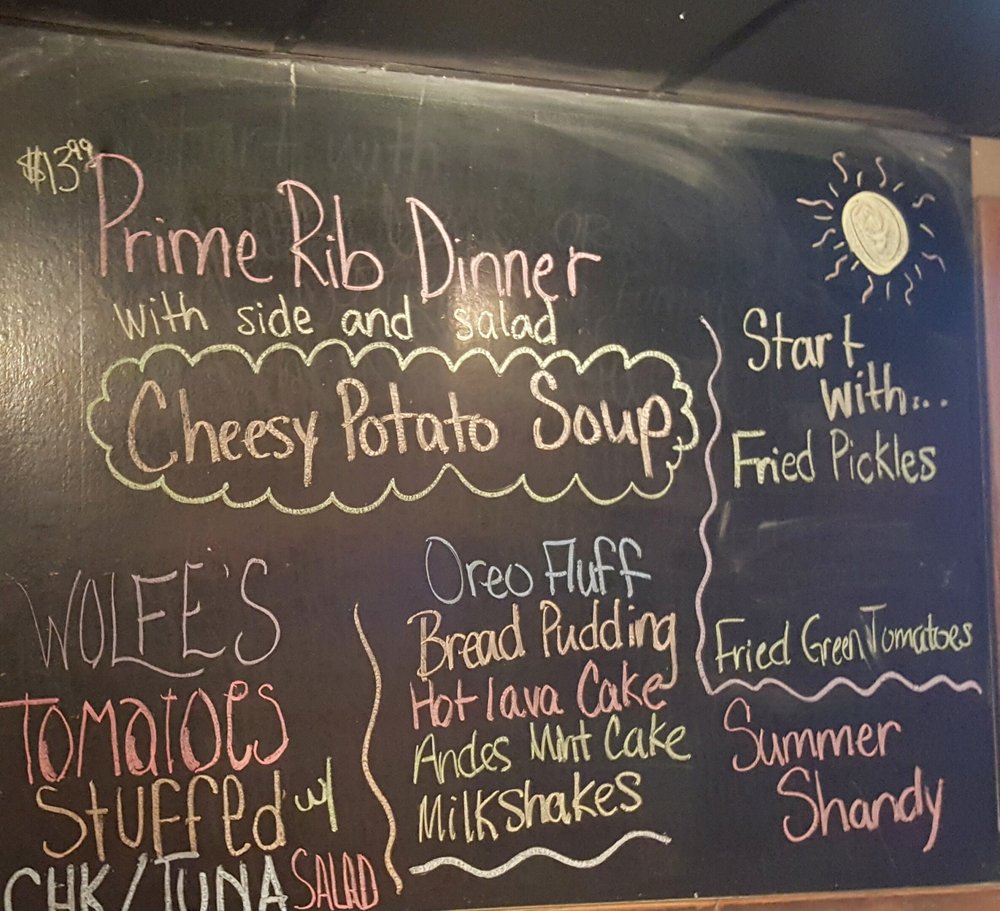 $13.99
Prime Rib Dinner
with side and salad
Cheesy Potato Soup
Start
with...
Fried Pickles
Fried Green Tomatoes
Summer
Shandy
WOLFE'S
TOMATOES
STUFFed w/
CHK/TUNA SALAD
Oreo Fluff
Bread Pudding
Hot lava Cake
Andes Mint Cake
Milkshakes